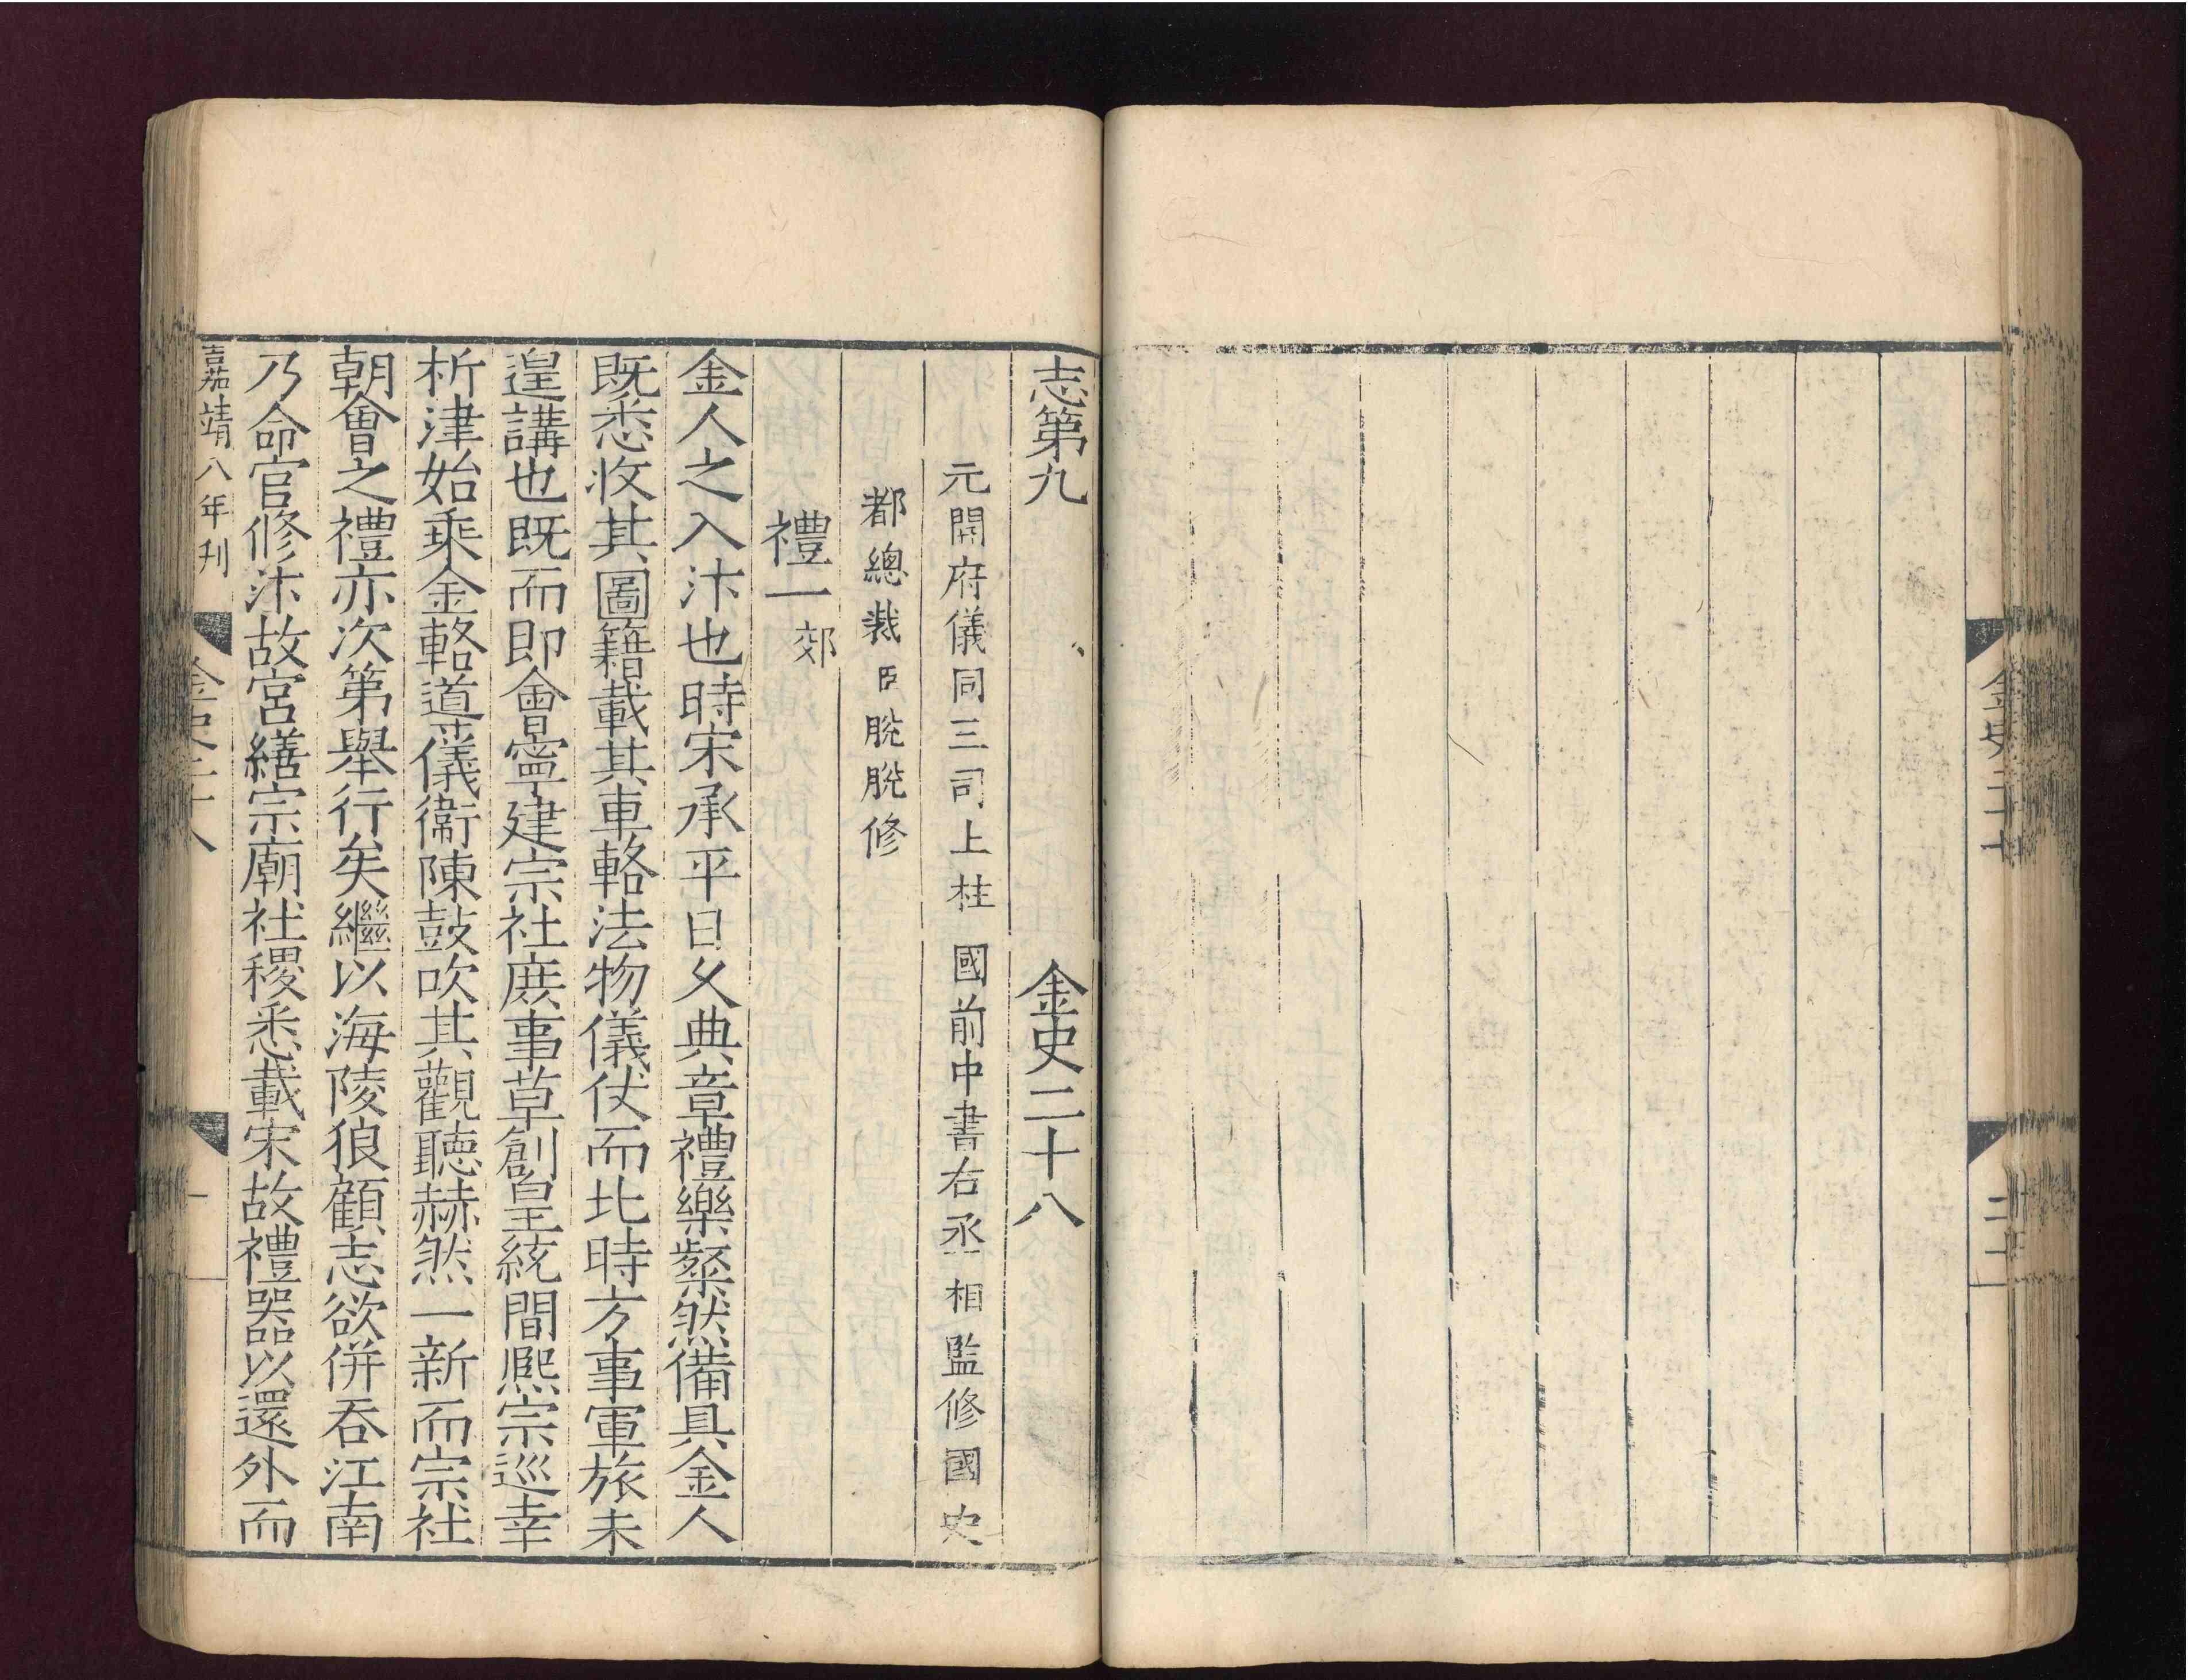 金史二十
二十
志第九 金史二十八
元開府儀同三司上柱國前中書右丞相監修國史
都總裁臣脫脫修
禮一郊
金人之入汴也時宋承平日久典章禮樂粲然備具金人
既悉收其圖籍載其車輅法物儀仗而北時方事軍旅未
遑講也既而即會寧建宗社庶事草創皇統間熈宗巡幸
析津始乘金輅導儀衞陳鼓吹其觀聽赫然一新而宗社
朝會之禮亦次第舉行矣繼以海陵狼顧志欲併吞江南
乃命官修汴故宮繕宗廟社稷悉載宋故禮器以還外而
嘉靖八年刊
金史二十八
一